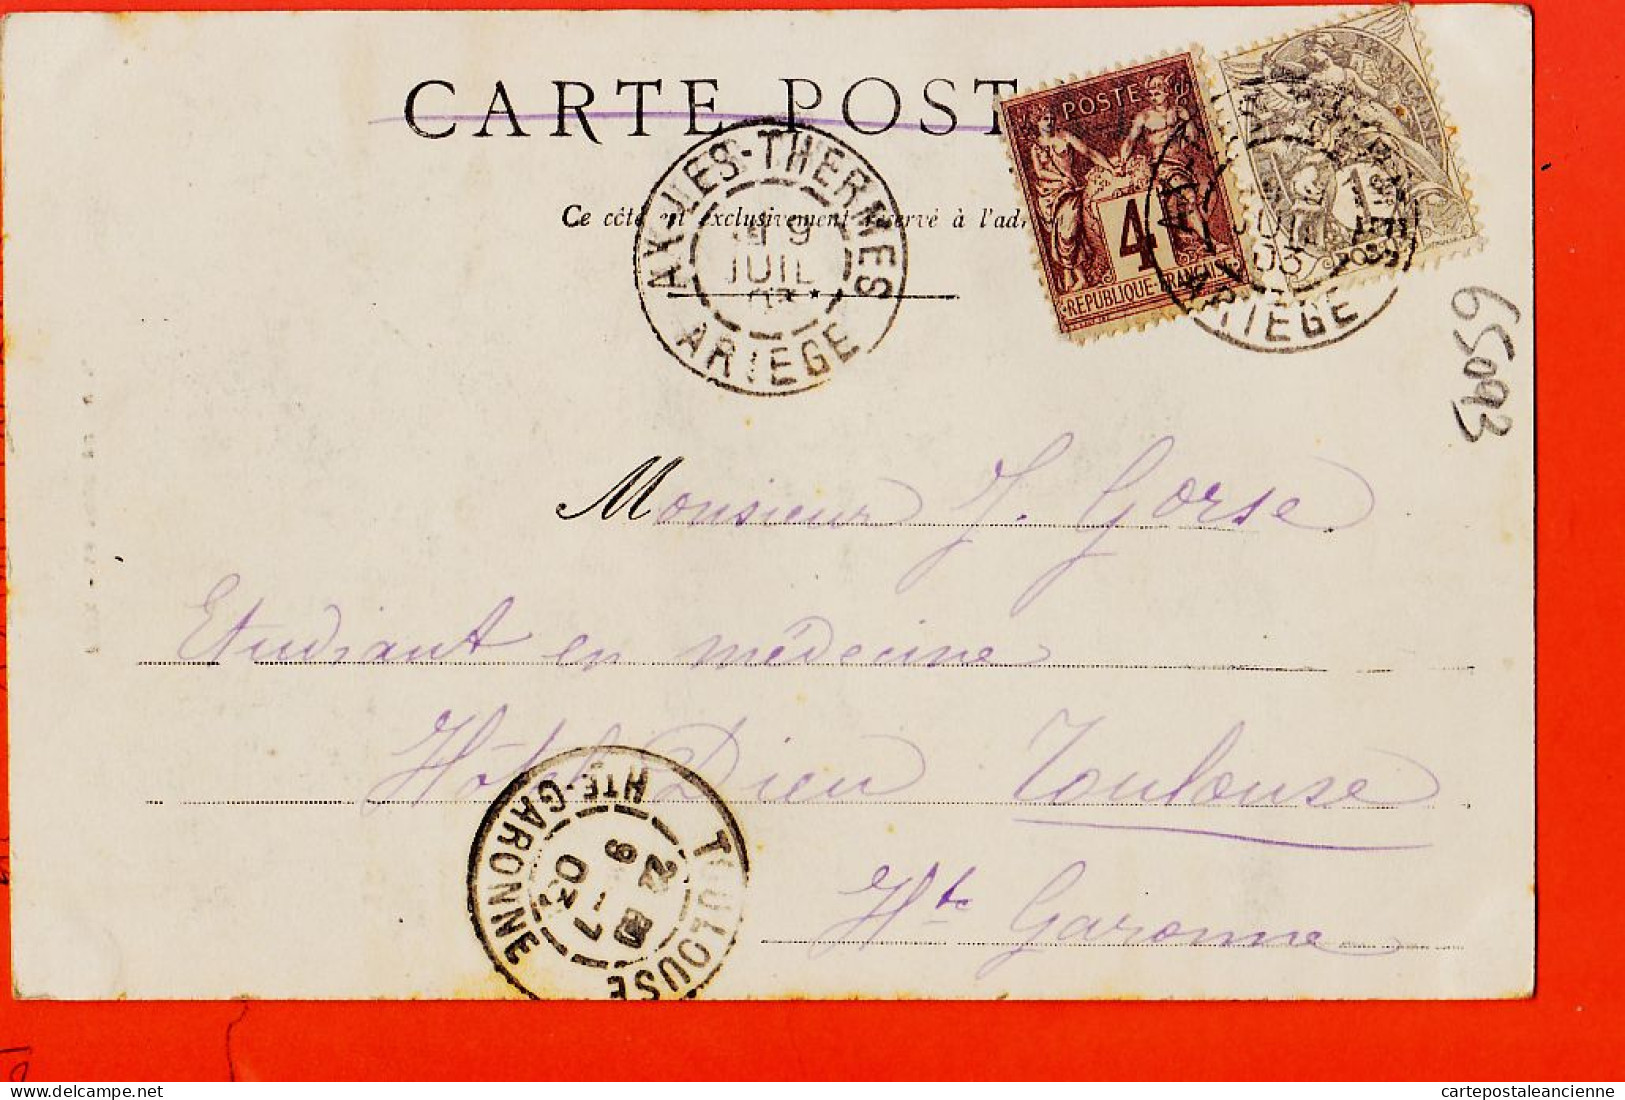 CARTE POST
Ce côté est exclusivement réservé à l'adr
AX-LES-THERMES
9
JUIL
ARIEGE
POSTE
4
REPUBLIQUE FRANÇAISE
FRANÇAISE
1
03
ARIEGE
65093
Monsieur J. Gorse
Etudiant en médecine
Hôtel Dieu Toulouse
Hte Garonne
TOULOUSE
HTE-GARONNE
9 - 7
03
cartepostaleancienne